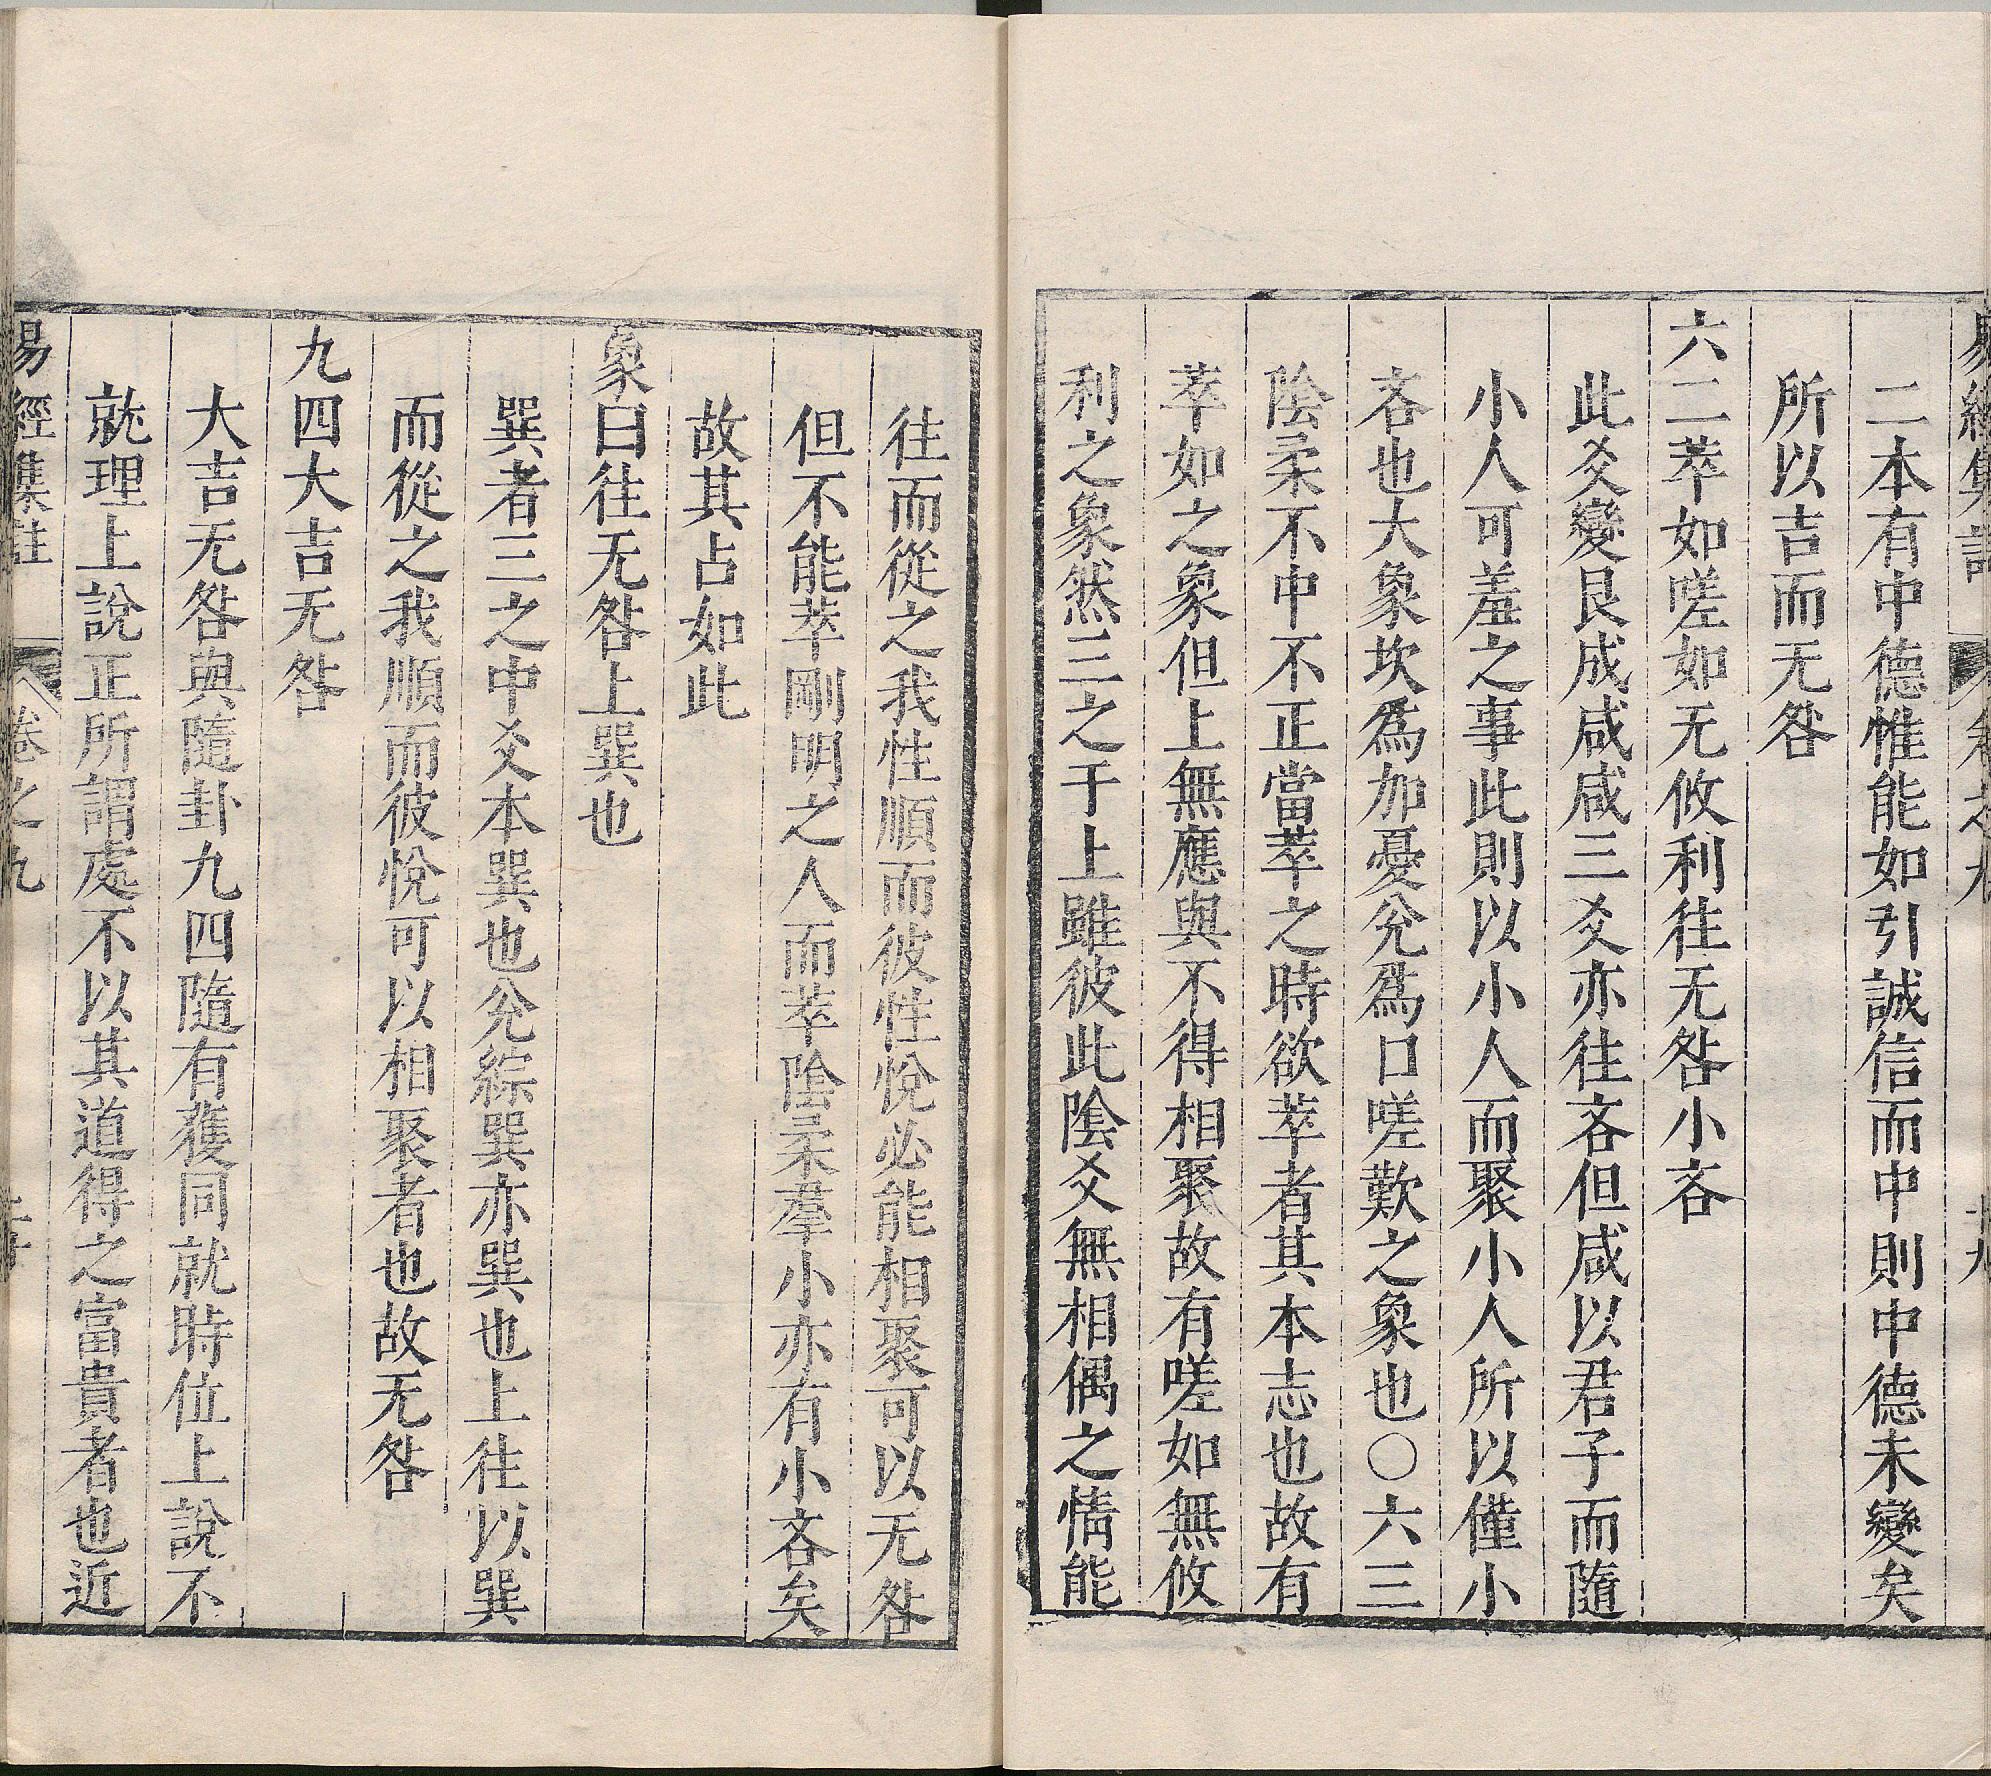 易經集註 卷之九
二本有中德惟能如引誠信而中則中德未變矣
所以吉而无咎
六二萃如嗟如无攸利往无咎小吝
此爻變艮成咸咸三爻亦往吝但咸以君子而隨
小人可羞之事此則以小人而聚小人所以僅小
吝也大象坎為加憂兊為口嗟歎之象也○六三
陰柔不中不正當萃之時欲萃者其本志也故有
萃如之象但上無應與不得相聚故有嗟如無攸
利之象然三之于上雖彼此陰爻無相偶之情能
往而從之我性順而彼性悅必能相聚可以无咎
但不能萃剛明之人而萃陰柔羣小亦有小吝矣
故其占如此
象曰往无咎上巽也
巽者三之中爻本巽也兊綜巽亦巽也上往以巽
而從之我順而彼悅可以相聚者也故无咎
九四大吉无咎
大吉无咎與隨卦九四隨有獲同就時位上說不
就理上說正所謂處不以其道得之富貴者也近
易經集註 卷之九